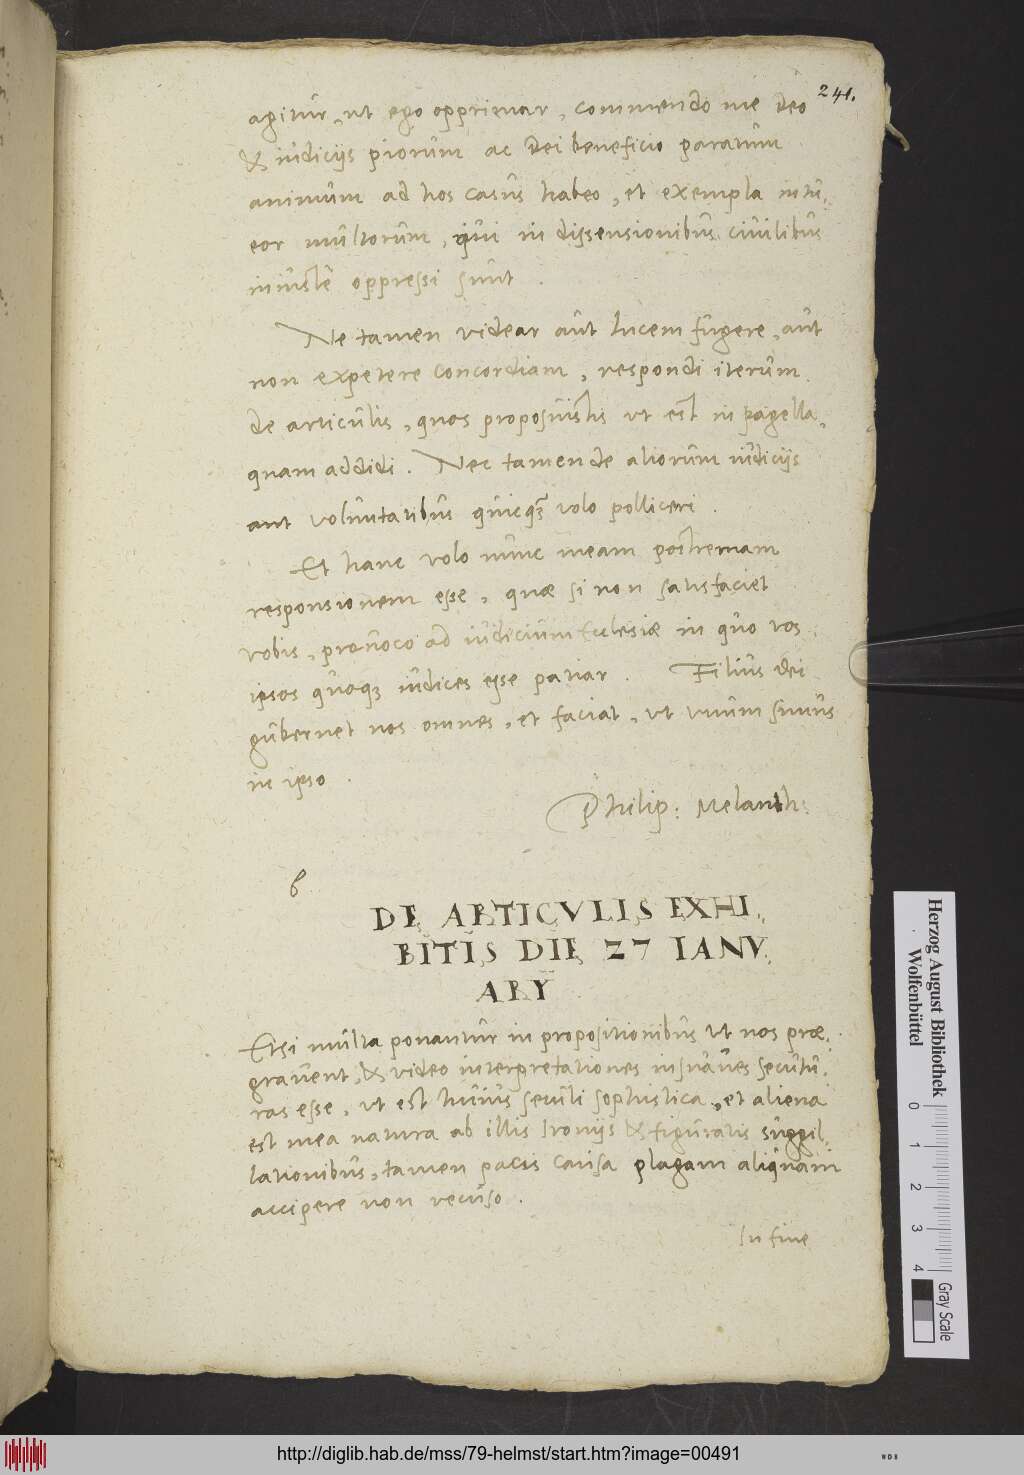 241.
agitur, ut ego opprimar, commendo me deo
& iudicijs piorum ac Dei beneficio paratum
animum ad hos casus habeo, et exempla intu-
eor multorum, qui in dissensionibus ciuilibus
iniuste oppressi sunt.
Ne tamen videar aut lucem fugere, aut
non expetere concordiam, respondi iterum
de articulis, quos proposuistis ut est in pagella,
quam addidi. Nec tamen de aliorum iudicijs
aut voluntatibus quicq3 volo polliceri.
Et hanc volo nunc meam postremam
responsionem esse, quæ si non satisfaciet
vobis, prouoco ad iudicium Ecclesiæ in quo vos
ipsos quoq3 iudices esse patiar. Filius dei
gubernet nos omnes, et faciat, ut unum simus
in ipso.
Philip: Melanth:
6
DE ARTICVLIS EXHI-
BITIS DIE 27 IANV-
ARY
Etsi multa ponantur in propositionibus ut nos præ-
grauent, & video interpretationes insuaues secutu-
ras esse, ut est huius seculi sophistica, et aliena
est mea natura ab illis Ironijs & figuratis suggil-
lationibus, tamen pacis causa plagam aliquam
accipere non recuso.
In fine
Herzog August Bibliothek
Wolfenbüttel
0 1 2 3 4
Gray Scale
http://diglib.hab.de/mss/79-helmst/start.htm?image=00491